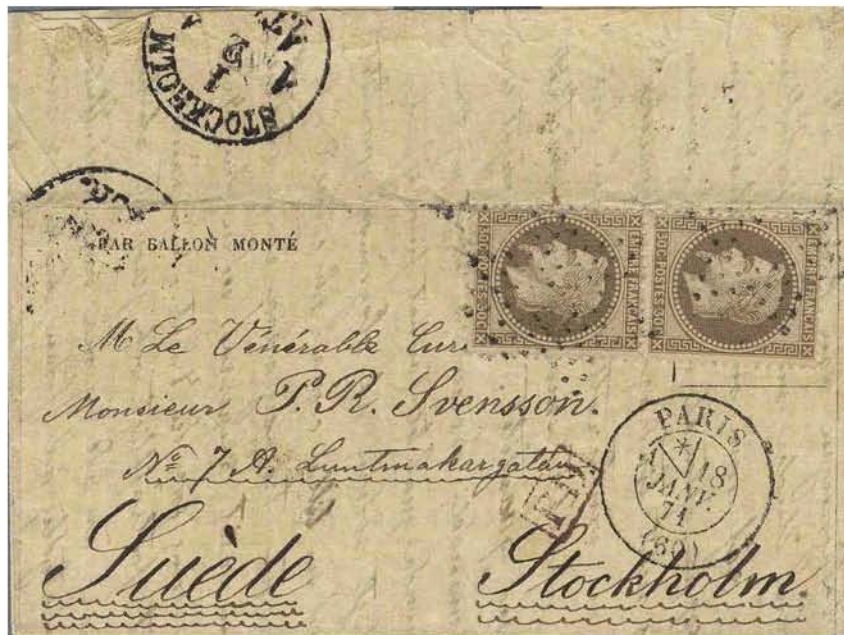 STOCKHOLM
1
PAR BALLON MONTÉ
EMPIRE FRANÇAIS
EMPIRE FRANÇAIS
30C POSTES 30C
M Le Vénérable
Monsieur P. R. Svensson.
No 7 A. Luntmakargatan
PARIS
18
JANV.
71
(60)
Suède Stockholm.